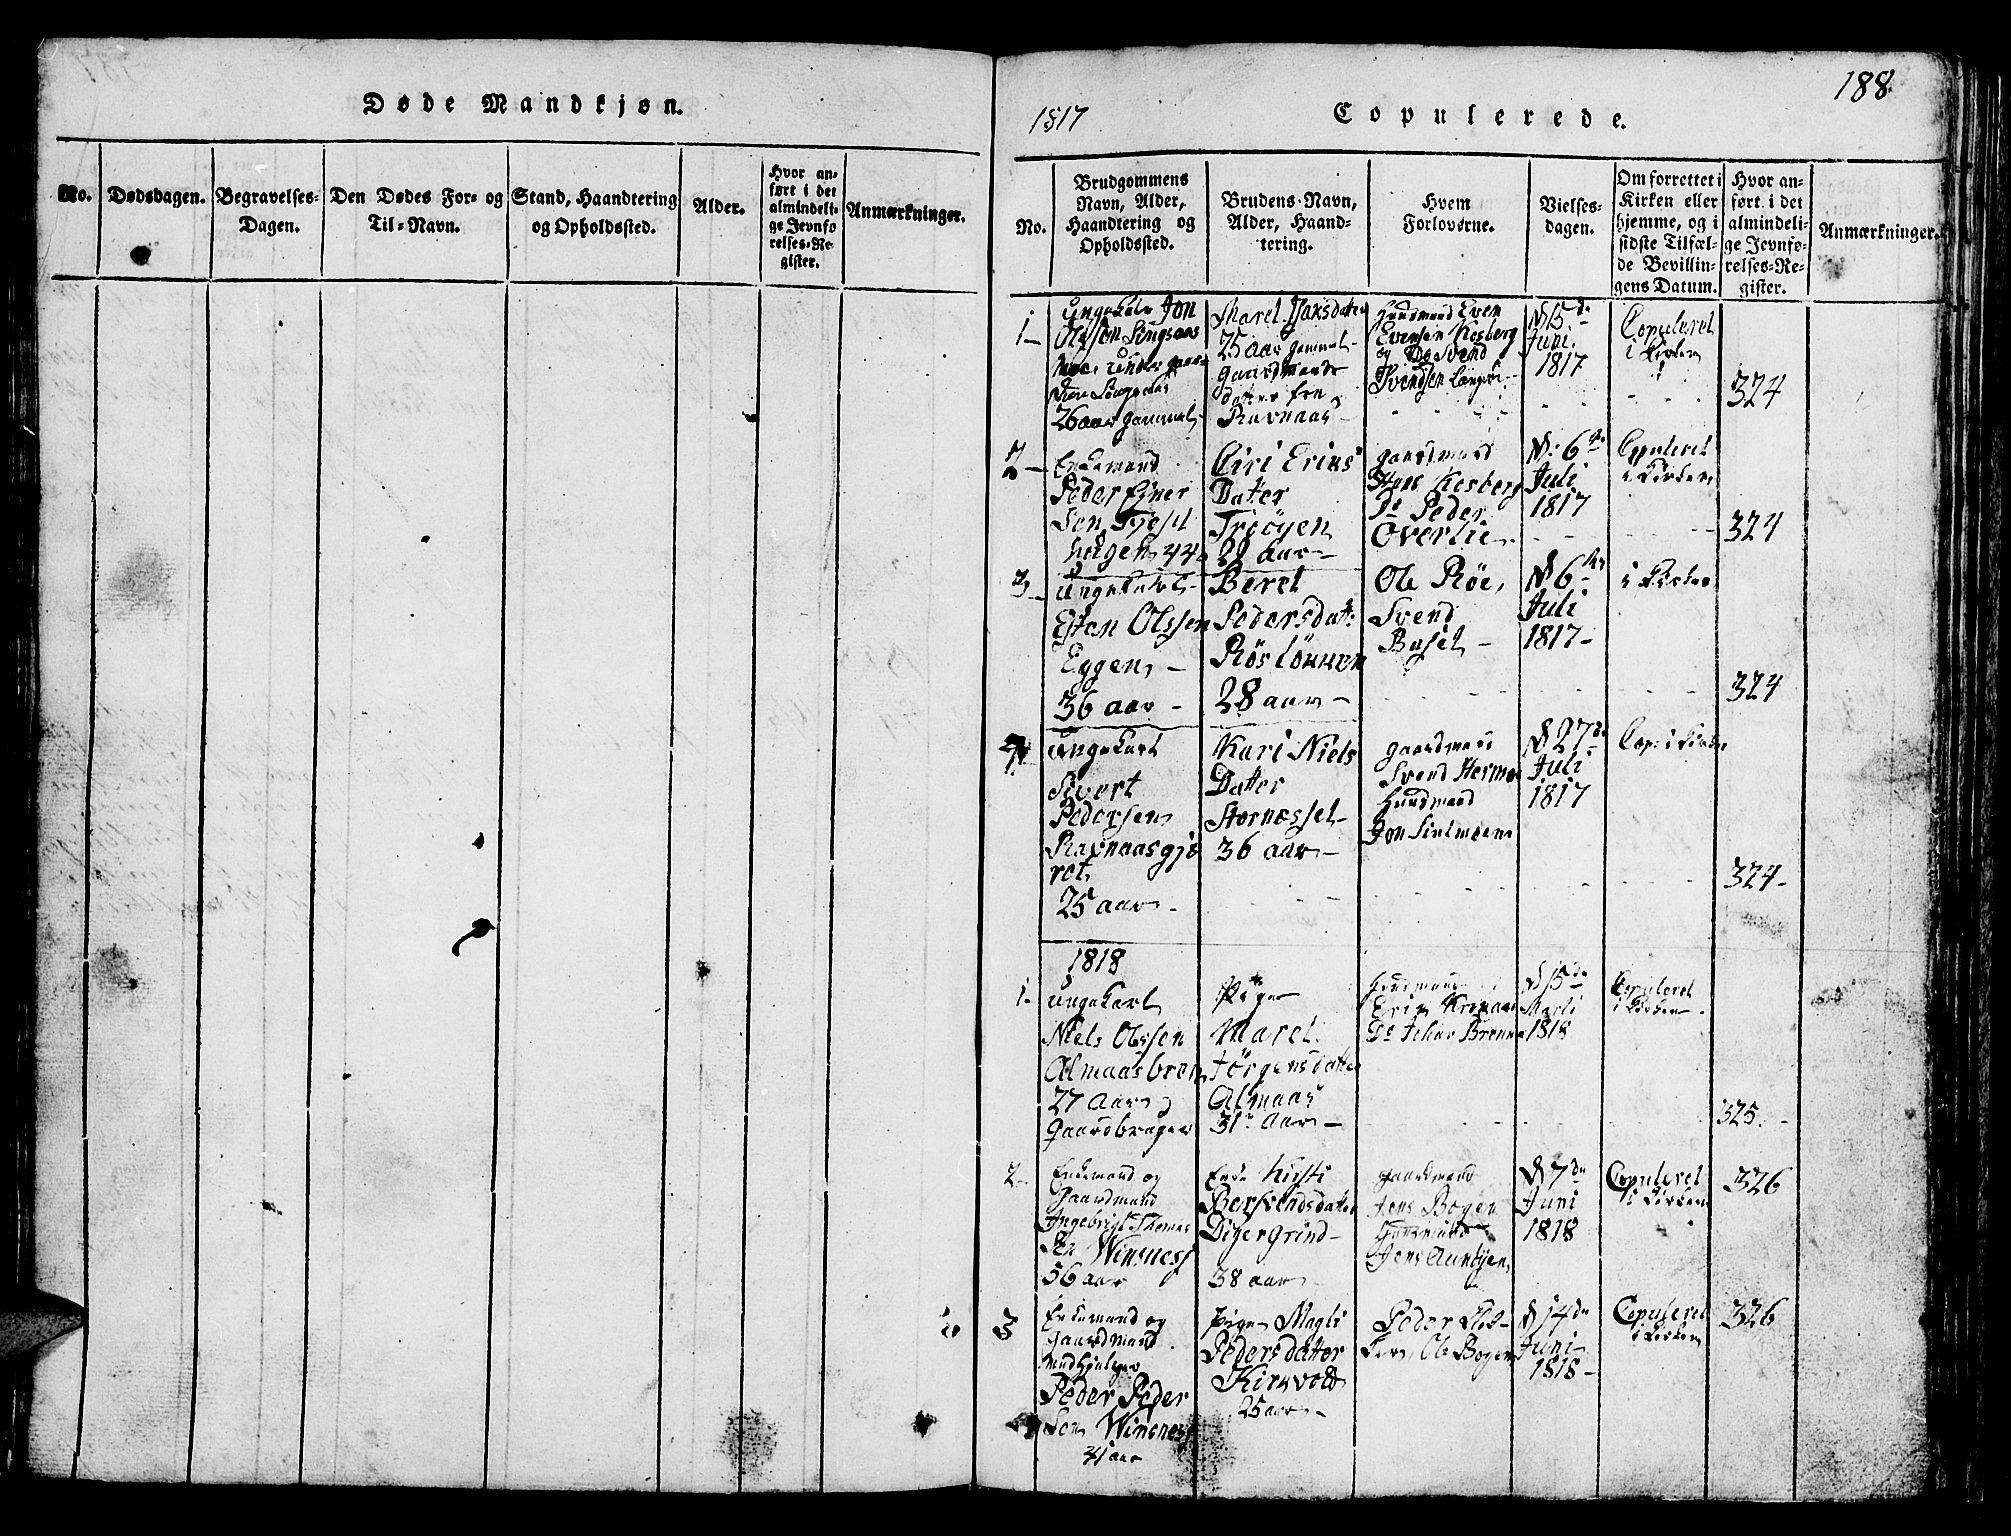 Døde Mandkjøn.
No.
Dødsdagen.
Begravelses-
Dagen.
Den Dødes For- og
Til-Navn.
Stand, Haandtering
og Opholdssted.
Alder.
Hvor an-
ført i det
almindeli-
ge Jevnfø-
relses-Re-
gister.
Anmærkninger.
188
1817
Copulerede.
No.
Brudgommens
Navn, Alder,
Haandtering og
Opholdssted.
Brudens Navn,
Alder, Haand-
tering.
Hvem
Forloverne.
Vielses-
dagen.
Om forrettet i
Kirken eller
hjemme, og i
sidste Tilfæl-
de Bevillin-
gens Datum.
Hvor an-
ført i det
almindeli-
ge Jevnfø-
relses-Re-
gister.
Anmærkninger.
1-
Ungekarl Jon
26 aar gammel
Marel Isaksdatter
25 aar gammel
Gaardmands
datter fra
Ravnaas
Huusmand Even
Evensen Kosberg
og Do Svend
Svendsen
D 15de
Juni
1817
Copuleret
i Kirken
324
2-
Enkemand
Peder Ejner
Sen
haugen 44
Siri Eriks
Datter
Trøøyen
29 aar
gaardmand
Hans Kosberg
Do Peder
Overlie
D: 6te
Juli
1817
Copuleret
i Kirken
324
3-
Ungekarl
Esten Olssen
Eggen
36 aar
Beret
Pedersdat:
Røsløkken
28 aar
Ole Røe,
Svend
Buset
D 6te
Juli
1817
i Kirken
324
4
Ungekarl
Sivert
Pedersen
Ravnaasgjæ
ret
25 aar
Kari Niels
Datter
Stornesset
36 aar
gaardmand
Svend Hermo
Huusmand
Jon
D 27de
Juli
1817
Cop: i Kirken
324
1818
1-
Ungekarl
Niels Olssen
Almaasbren
27 Aar
Gaardbruger
Pige
Marel
Jørgensdatter
Almaas
31 Aar
Huusmand
Erik
Do Johan Brenna
D 15de
Marti
1818
Copuleret
i Kirken
325.
2-
Enkemand og
Gaardmand
Ingebrigt Thomas
Sen Winsnes
56 aar
Enke Kirsti
Bersvendsdatter
Digergrind
38 aar
gaardmand
Jens Bogen
Jens Aunøyen
D 7de
Juni
1818
Copuleret
i Kirken
326
3
Enkemand og
Gaardmand
Peder Peder
Sen Winsnes
41 aar
Pigen Magli
Pedersdatter
Kirkvold
25 aar
Peder
Ole Bogen
D 14de
Juni
1818
Copuleret
i Kirken
326